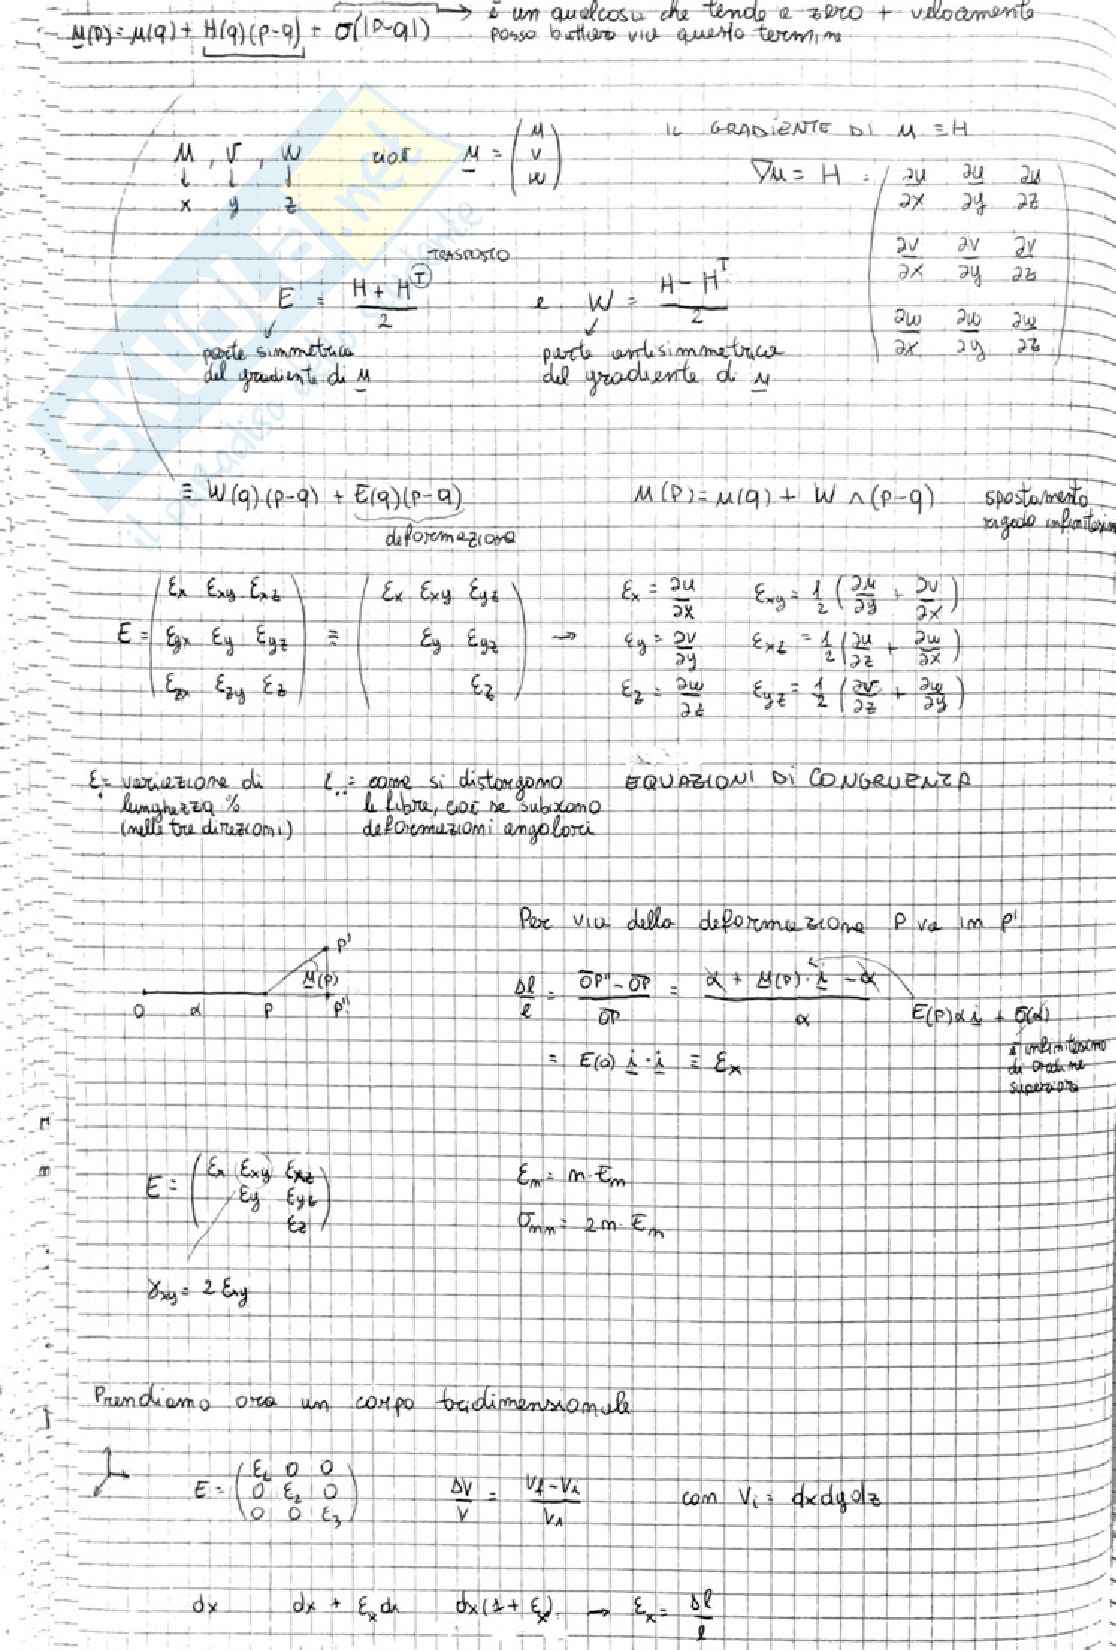 u(p) = u(q) + H(q)(p-q) + σ(|p-q|) → è un qualcosa che tende a zero + velocemente
posso buttare via questo termine
u, v, w cioè u = (u v w)
↓ ↓ ↓
x y z
IL GRADIENTE DI u ≡ H
∇u = H = ( ∂u/∂x ∂u/∂y ∂u/∂z
∂v/∂x ∂v/∂y ∂v/∂z
∂w/∂x ∂w/∂y ∂w/∂z )
TRASPOSTO
E = (H + H^T)/2 e W = (H - H^T)/2
parte simmetrica
del gradiente di u
parte antisimmetrica
del gradiente di u
≡ W(q)(p-q) + E(q)(p-q)
deformazione
u(p) = u(q) + W ∧ (p-q) spostamento
rigido infinitesimo
E = ( εx εxy εxz ) = ( εx εxy εyz ) → εx = ∂u/∂x εxy = 1/2 (∂u/∂y + ∂v/∂x)
( εyx εy εyz ) ( εy εyz ) εy = ∂v/∂y εxz = 1/2 (∂u/∂z + ∂w/∂x)
( εzx εzy εz ) ( εz ) εz = ∂w/∂z εyz = 1/2 (∂v/∂z + ∂w/∂y)
ε. = variazione di
lunghezza %
(nelle tre direzioni)
ε.. = come si distorgono
le fibre, cioè se subiscono
deformazioni angolari
EQUAZIONI DI CONGRUENZA
Per via della deformazione P va in P'
P'
u(P)
O α P P''
Δl/l = (OP'' - OP)/OP = (α + u(P)·i - α)/α
E(P)α i + σ(α)
è infinitesimo
di ordine
superiore
= E(0) i · i ≡ εx
E = ( εx εxy εxz
εy εyz
εz )
εn = n · En
σmn = 2m · En
γxy = 2 εxy
Prendiamo ora un corpo tridimensionale
E = ( ε1 0 0
0 ε2 0
0 0 ε3 )
ΔV/V = (Vf - Vi)/Vi con Vi = dxdydz
dx dx + εx dx dx(1 + εx) → εx = Δl/l
SKUOLA.net
il paradiso dello studente